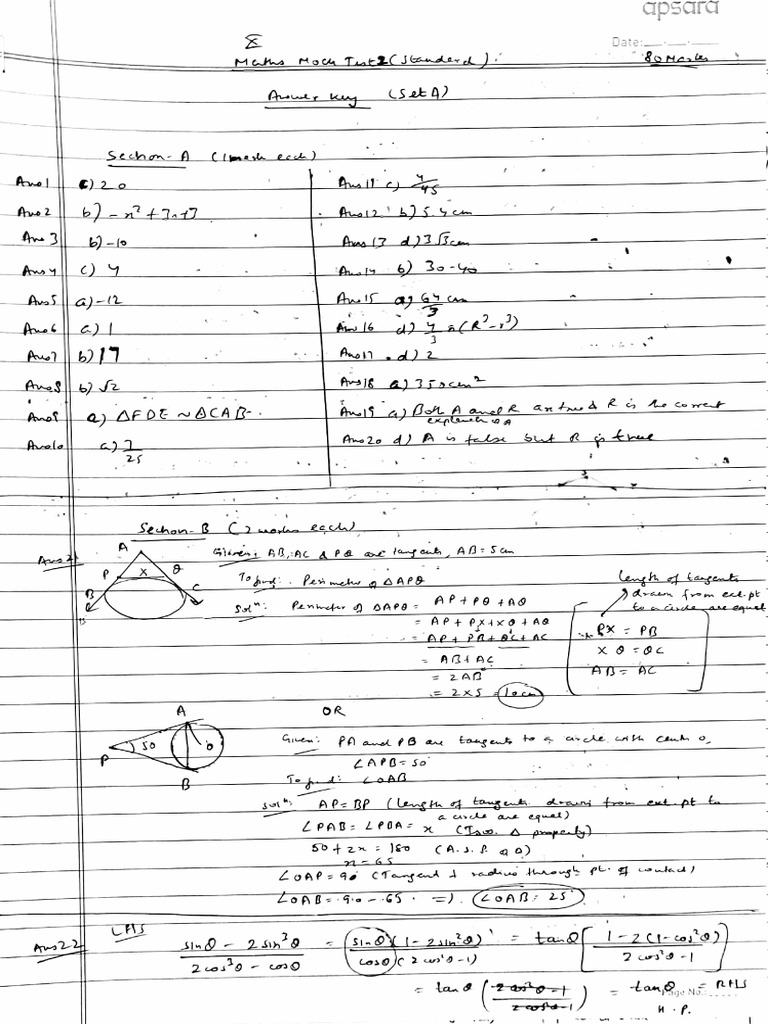 apsara
Date:
X
Maths Mock Test 2 (Standard) 80 Marks
Answer Key (Set A)
Section-A (1 mark each)
Ans 1 c) 20
Ans 2 b) -x² + 3x + 3
Ans 3 b) -10
Ans 4 c) 4
Ans 5 a) -12
Ans 6 c) 1
Ans 7 b) 17
Ans 8 b) √2
Ans 9 a) ΔFDE ~ ΔCAB
Ans 10 a) 7/25
Ans 11 c) 4/45
Ans 12 b) 5.4 cm
Ans 13 d) 3√3 cm
Ans 14 b) 30-40
Ans 15 a) 64/3 cm
Ans 16 d) 4/3 π(R³-r³)
Ans 17 d) 2
Ans 18 a) 350 cm²
Ans 19 a) Both A and R are true & R is the correct
explanation of A
Ans 20 d) A is false but R is true
Section-B (2 marks each)
Ans 21
A
P X Q
B C
Given: AB, AC & PQ are tangents, AB = 5cm
To find: Perimeter of ΔAPQ
Solⁿ: Perimeter of ΔAPQ = AP + PQ + AQ
= AP + PX + XQ + AQ
= AP + PB + QC + AC
= AB + AC
= 2AB
= 2×5 = 10cm
length of tangents
drawn from ext. pt
to a circle are equal
PX = PB
XQ = QC
AB = AC
OR
A
P 50 O
B
Given: PA and PB are tangents to a circle with centre O,
∠APB = 50°
To find: ∠OAB
Solⁿ: AP = BP (length of tangents drawn from ext. pt to
a circle are equal)
∠PAB = ∠PBA = x (Isos. Δ property)
50 + 2x = 180 (A.S.P. of Δ)
x = 65
∠OAP = 90 (Tangent ⊥ radius through pt. of contact)
∠OAB = 90 - 65 => ∠OAB = 25°
Ans 22 LHS
sinθ - 2sin³θ / 2cos³θ - cosθ = sinθ (1-2sin²θ) / cosθ (2cos²θ-1) = tanθ [1-2(1-cos²θ) / 2cos²θ-1]
= tanθ (2cos²θ-1 / 2cos²θ-1) = tanθ = RHS
H.P.
Page No.